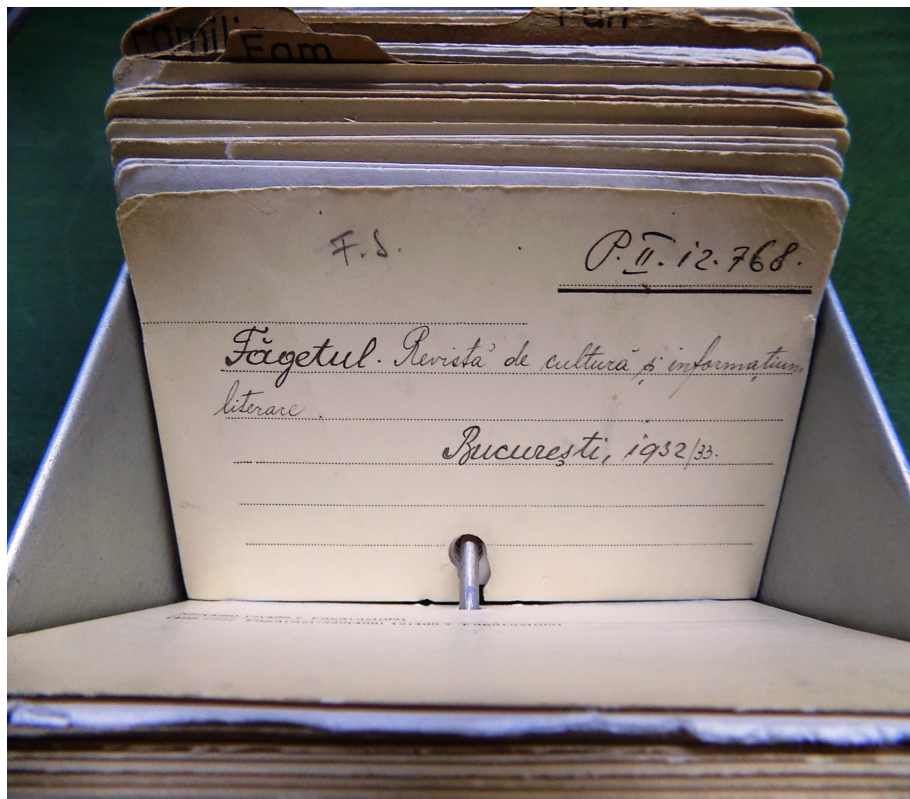 Famili
Fam
Fan
F.d.
P.II.12.768.
Făgetul. Revistă de cultură și informațiuni
literare.
București, 1932/33.